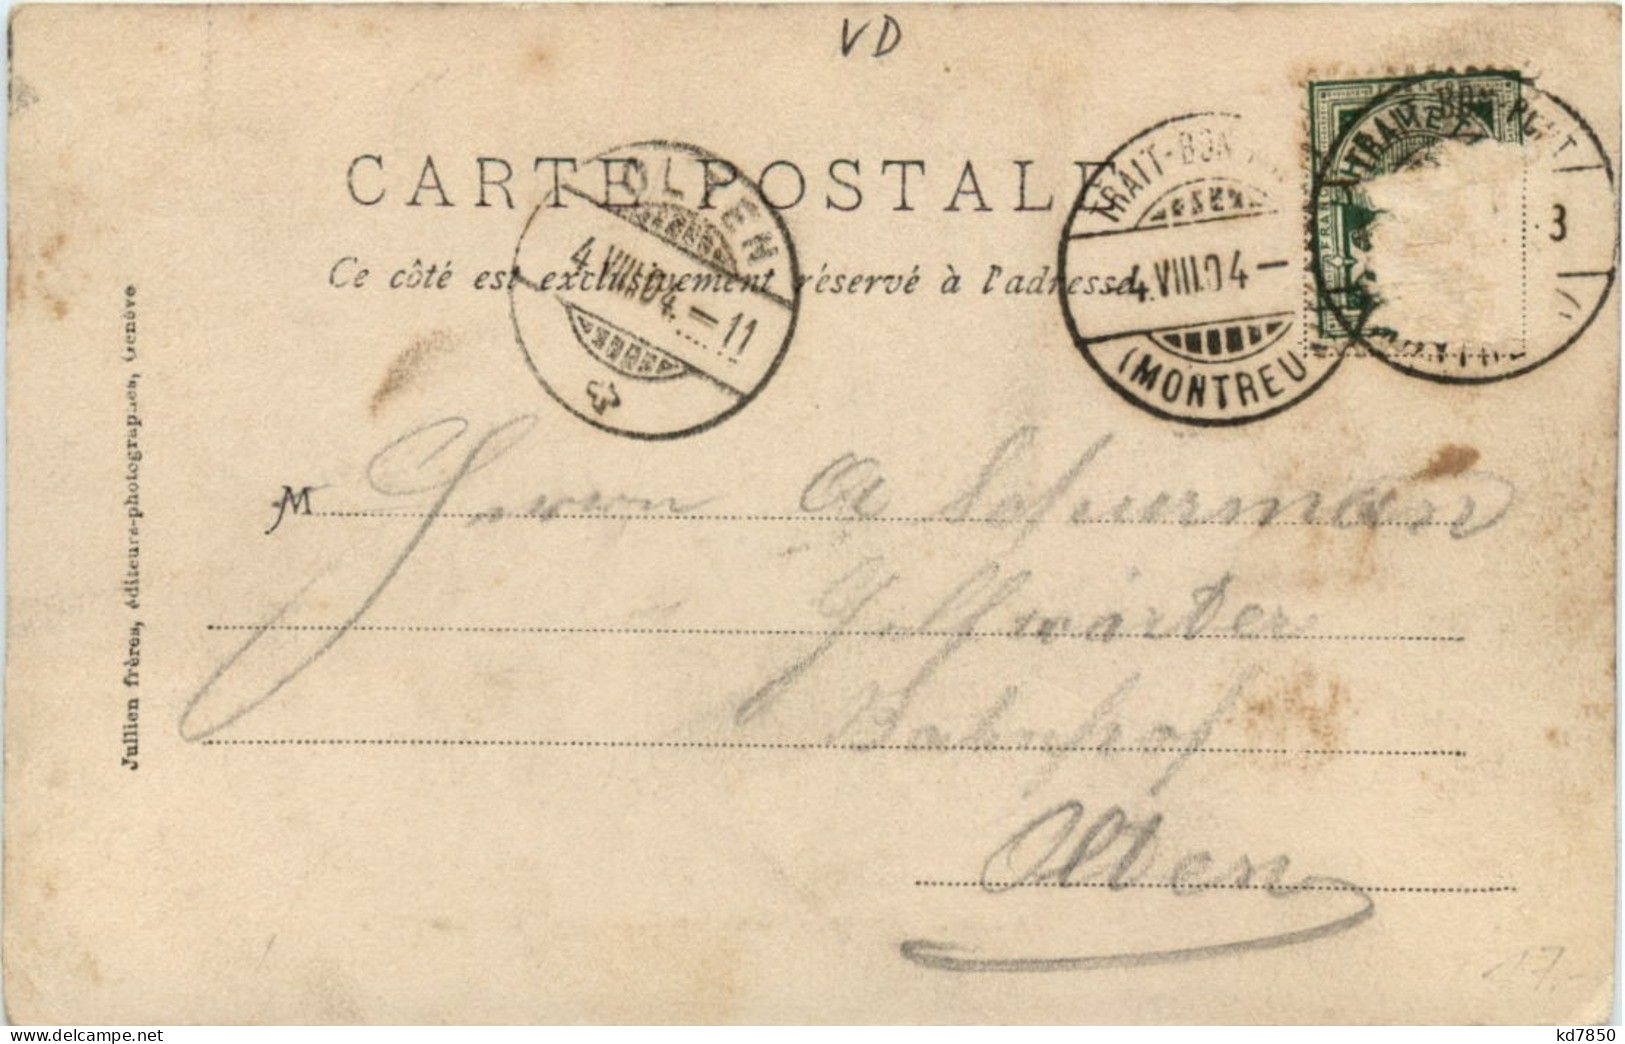 VD
CARTE POSTALE
Ce côté est exclusivement réservé à l'adresse.
OLTEN
4.VIII.04.-11
TRAIT-BON
4.VIII.04-
(MONTREU
TRAIT
BON-PORT
3
FRAN
Jullien frères, éditeurs-photographes, Genève
M Herrn A Schürmann
Bahnhof
Olten
17.-
kd7850